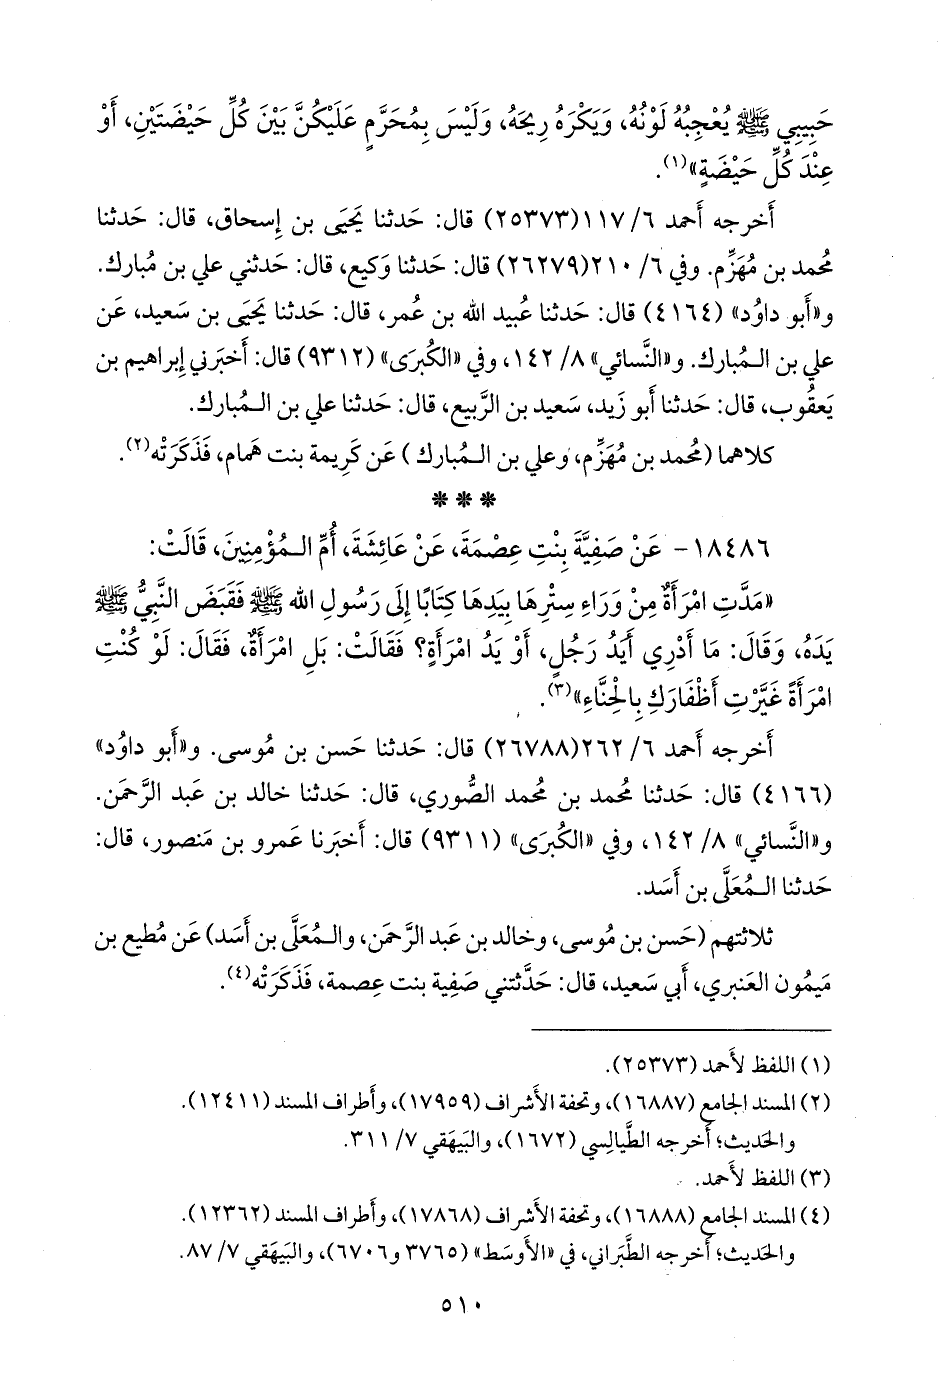 حَبِيبِي ﷺ يُعْجِبُهُ لَوْنُهُ، وَيَكْرَهُ رِيحَهُ، وَلَيْسَ بِمُحَرَّمٍ عَلَيْكُنَّ بَيْنَ كُلِّ حَيْضَتَيْنِ، أَوْ
عِنْدَ كُلِّ حَيْضَةٍ»(١).
أَخرجه أَحمد ٦/ ١١٧(٢٥٣٧٣) قال: حَدثنا يَحيَى بن إِسحاق، قال: حَدثنا
مُحمد بن مُهَزِّم. وفي ٦/ ٢١٠(٢٦٢٧٩) قال: حَدثنا وَكيع، قال: حَدثني علي بن مُبارك.
و«أَبو داوُد» (٤١٦٤) قال: حَدثنا عُبيد الله بن عُمر، قال: حَدثنا يَحيَى بن سَعيد، عَن
علي بن المُبارك. و«النَّسائي» ٨/ ١٤٢، وفي «الكُبرَى» (٩٣١٢) قال: أَخبَرني إِبراهيم بن
يَعقُوب، قال: حَدثنا أَبو زَيد، سَعيد بن الرَّبيع، قال: حَدثنا علي بن المُبارك.
كلاهما (مُحمد بن مُهَزِّم، وعلي بن المُبارك) عَن كَرِيمة بنت هَمام، فَذَكَرَتْه(٢).
* * *
١٨٤٨٦- عَنْ صَفِيَّةَ بِنْتِ عِصْمَةَ، عَنْ عَائِشَةَ، أُمِّ المُؤْمِنِينَ، قَالَتْ:
«مَدَّتِ امْرَأَةٌ مِنْ وَرَاءِ سِتْرِهَا بِيَدِهَا كِتَابًا إِلَى رَسُولِ الله ﷺ فَقَبَضَ النَّبِيُّ ﷺ
يَدَهُ، وَقَالَ: مَا أَدْرِي أَيَدُ رَجُلٍ، أَوْ يَدُ امْرَأَةٍ؟ فَقَالَتْ: بَلِ امْرَأَةٌ، فَقَالَ: لَوْ كُنْتِ
امْرَأَةً غَيَّرْتِ أَظْفَارَكِ بِالْحِنَّاءِ»(٣).
أَخرجه أَحمد ٦/ ٢٦٢(٢٦٧٨٨) قال: حَدثنا حَسن بن مُوسى. و«أَبو داوُد»
(٤١٦٦) قال: حَدثنا مُحمد بن مُحمد الصُّوري، قال: حَدثنا خالد بن عَبد الرَّحمَن.
و«النَّسائي» ٨/ ١٤٢، وفي «الكُبرَى» (٩٣١١) قال: أَخبَرنا عَمرو بن مَنصور، قال:
حَدثنا المُعَلَّى بن أَسَد.
ثلاثتهم (حَسن بن مُوسى، وخالد بن عَبد الرَّحمَن، والمُعَلَّى بن أَسَد) عَن مُطيع بن
مَيمُون العَنبري، أَبي سَعيد، قال: حَدَّثتني صَفية بنت عِصمة، فَذَكَرَتْه(٤).
(١) اللفظ لأَحمد (٢٥٣٧٣).
(٢) المسند الجامع (١٦٨٨٧)، وتحفة الأَشراف (١٧٩٥٩)، وأَطراف المسند (١٢٤١١).
والحَديث؛ أَخرجه الطَّيالِسي (١٦٧٢)، والبَيهَقي ٧/ ٣١١.
(٣) اللفظ لأَحمد.
(٤) المسند الجامع (١٦٨٨٨)، وتحفة الأَشراف (١٧٨٦٨)، وأَطراف المسند (١٢٣٦٢).
والحَديث؛ أَخرجه الطَّبَراني، في «الأَوسَط» (٣٧٦٥ و٦٧٠٦)، والبَيهَقي ٧/ ٨٧.
٥١٠